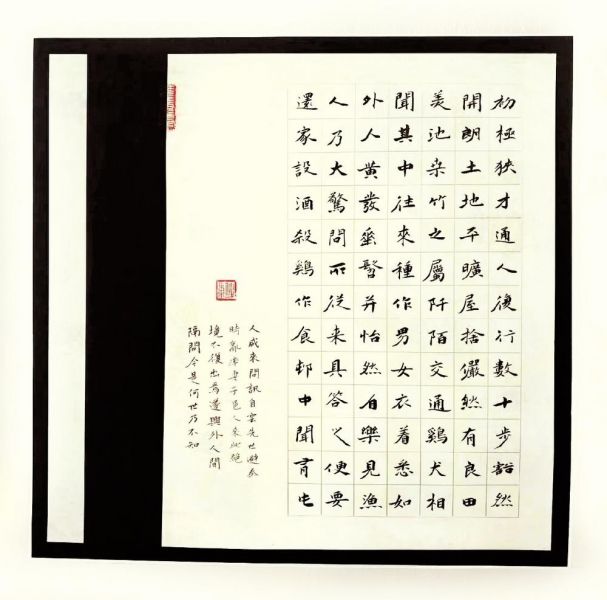 初極狹才通人復行數十步豁然
開朗土地平曠屋捨儼然有良田
美池桑竹之屬阡陌交通鷄犬相
聞其中往來種作男女衣着悉如
外人黃發垂髫并怡然自樂見漁
人乃大驚問所從来具答之便要
還家設酒殺鷄作食邨中聞有此
人咸来問訊自雲先世避秦
時亂率妻子邑人来此絕
境不復出焉遂與外人間
隔問今是何世乃不知